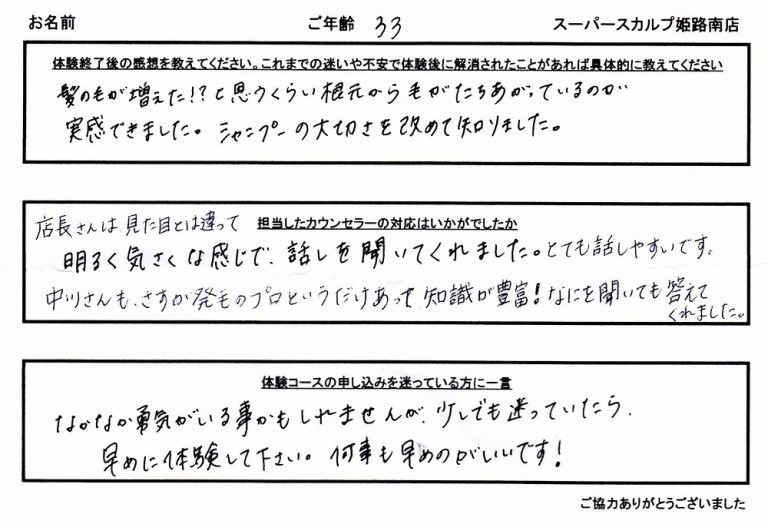 お名前 ご年齢 33 スーパースカルプ姫路南店
体験終了後の感想を教えてください。これまでの迷いや不安で体験後に解消されたことがあれば具体的に教えてください
髪の毛が増えた!?と思うくらい根元から毛がたちあがっているのが
実感できました。シャンプーの大切さを改めて知りました。
担当したカウンセラーの対応はいかがでしたか
店長さんは見た目とは違って
明るく気さくな感じで、話しを聞いてくれました。とても話しやすいです。
中川さんも、さすが発毛のプロというだけあって知識が豊富!なにを聞いても答えて
くれました。
体験コースの申し込みを迷っている方に一言
なかなか勇気がいる事かもしれませんが、少しでも迷っていたら、
早めに体験して下さい。何事も早めのがいいです!
ご協力ありがとうございました